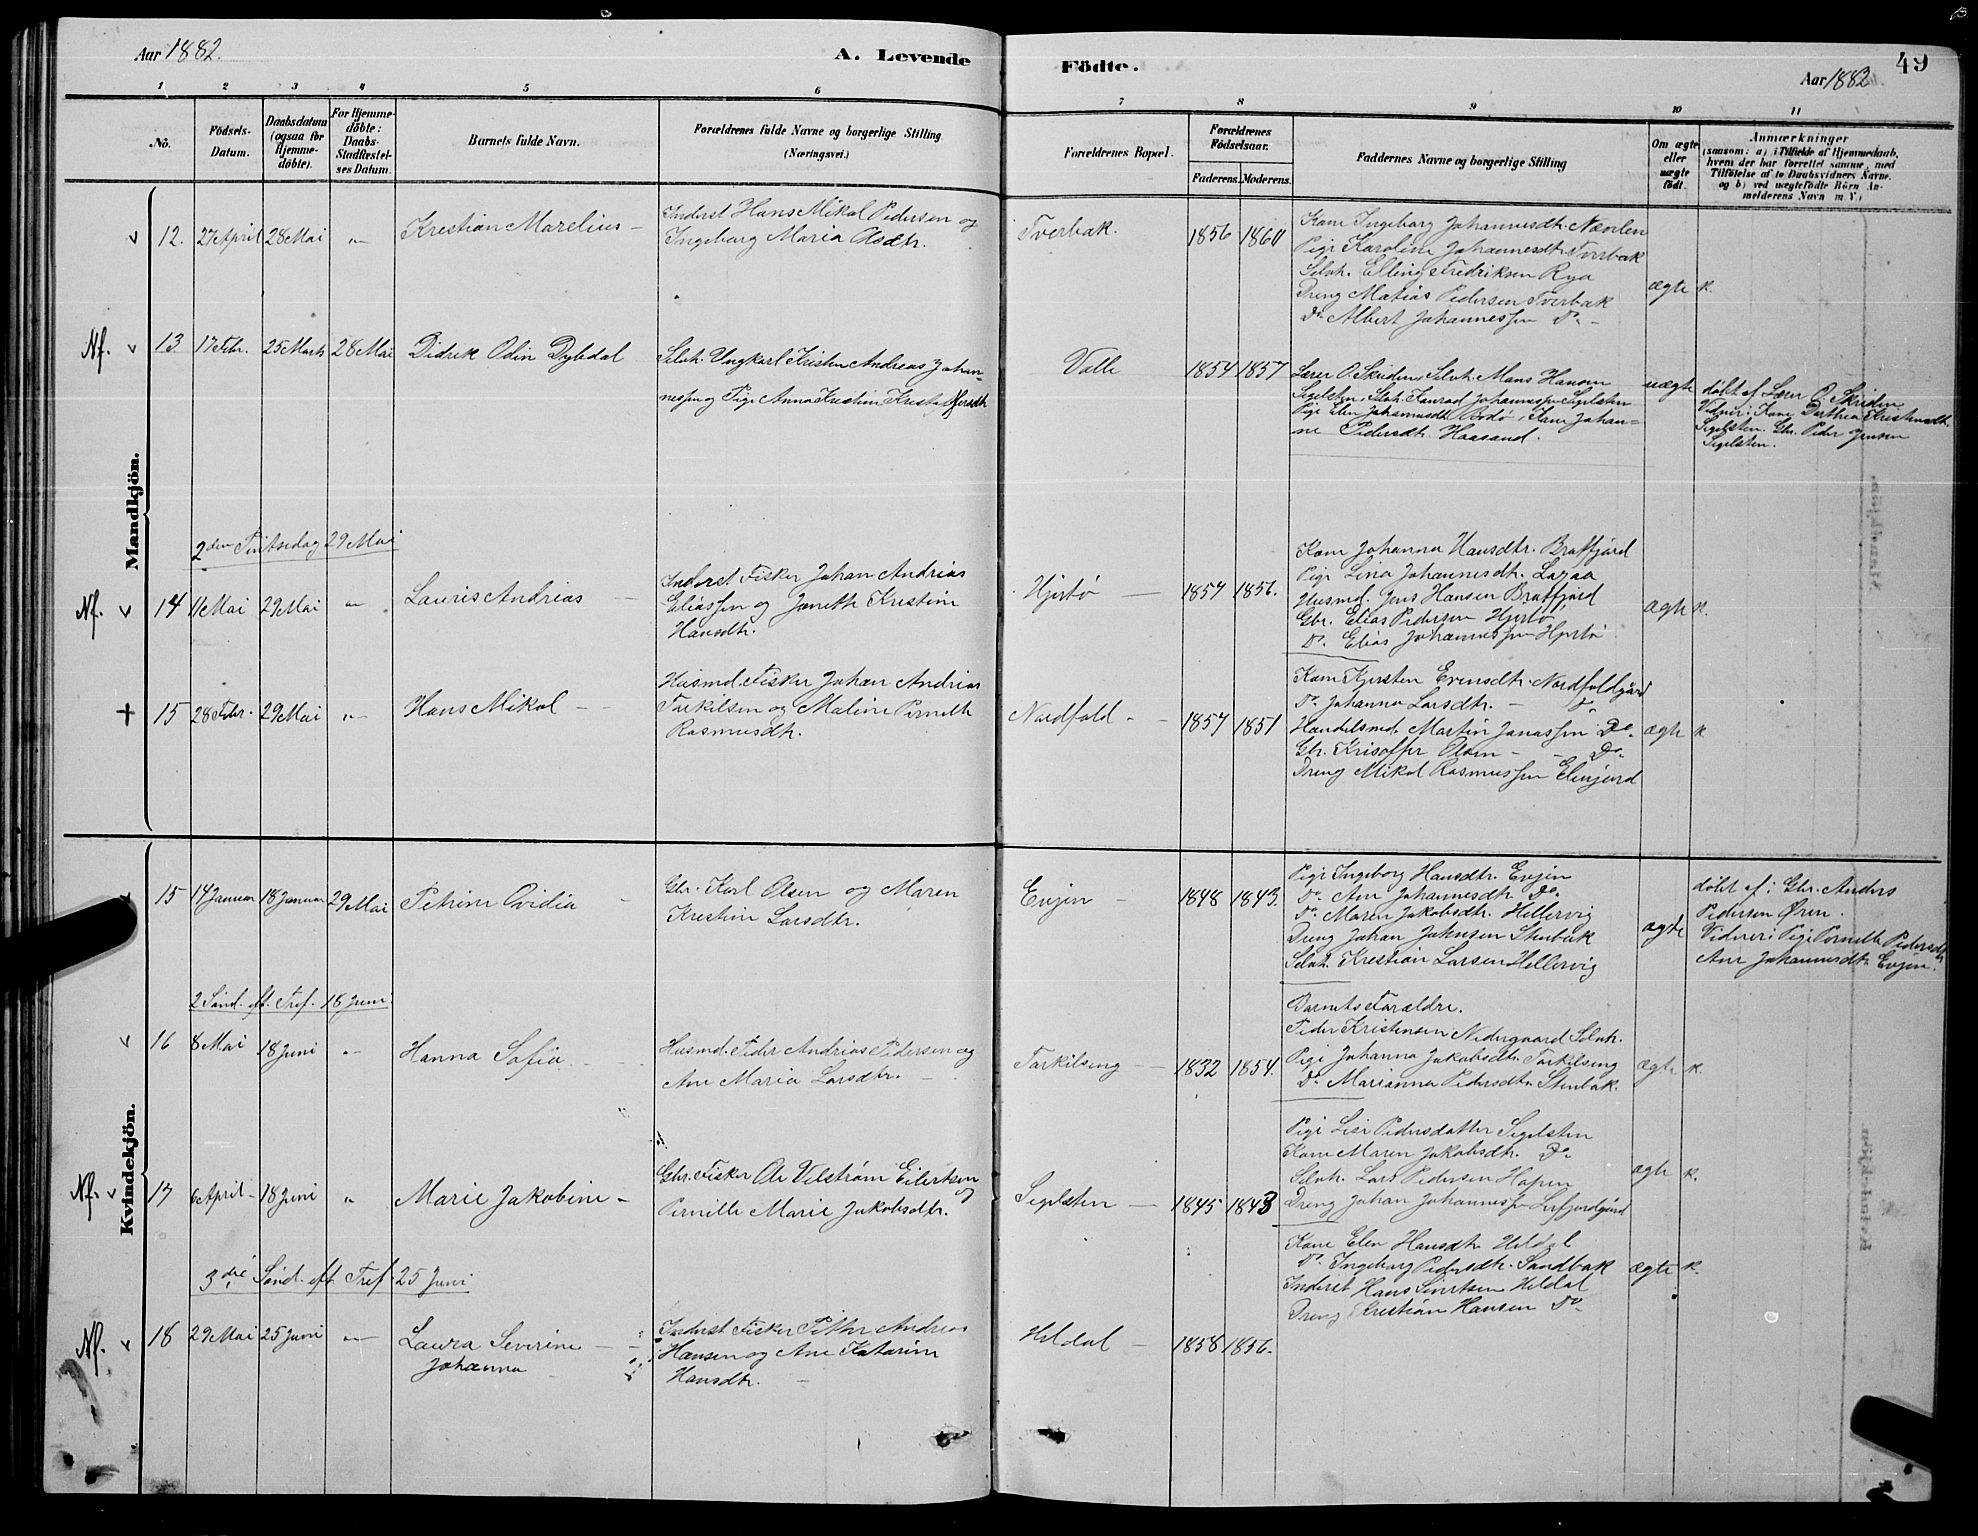 Aar 1882.
A. Levende
Födte.
Aar 1882
49
1 2 3 4 5 6 7 8 9 10 11
No.
Födsels-
Datum.
Daabsdatum
(ogsaa för
Hjemme-
döbte).
For Hjemme-
döbte:
Daabs-
Stadfestel-
ses Datum.
Barnets fulde Navn.
Forældrenes fulde Navne og borgerlige Stilling
(Næringsvei.)
Forældrenes Bopæl.
Forældrenes
Födselsaar.
Faderens. Moderens.
Faddernes Navne og borgerlige Stilling
Om ægte
eller
uægte
födt.
Anmærkninger
(saasom: a) i Tilfælde af Hjemmedaab,
hvem der har forrettet samme, med
Tilföielse af to Daabsvidners Navne,
og b) ved uægtefödte Börn An-
melderens Navn m. V.)
Mandkjön.
12. 27 April 28 Mai "
Krestian Marelius
Inderst Hans Mikal Pedersen og
Ingeborg Maria Olsdtr.
Tverbak.
1856 1860
Kone Ingeborg Johannesdtr.
Pige Karoline Johannesdtr. Tverbak
Selvh. Elling Fredriksen Rya
Dreng Matias Pedersen Tverbak
Do Albert Johannessen Do
ægte k.
Nf. 13 17 Febr. 25 Marts 28 Mai
Didrik Odin Dybdal
Selvh. Ungkarl Kristen Andreas Johan=
nessen og Pige Anna Kristine Kristoffersdtr
Valle
1854 1857
Lærer O. Skriden, Selvh. Mans Hansen
Segelsten, Selvh. Konrad Johannessen Segelsten
Pige Elen Johannesdtr Bodø, Kone Johan=
ne Pedersdtr. Haasand.
uægte
døbt af Lærer O. Skriden
Vidner: Kone Dorthea Kristensdtr.
Segelsten. Gbr. Peder Jensen
Segelsten.
2den Pintsedag 29 Mai
Nf. 14 11 Mai 29 Mai "
Lauris Andreas
Inderst Fisker Johan Andrias
Eliassen og Janeth Krestine
Hansdtr.
Hjertø
1857 1856.
Kone Johanna Hansdtr. Bratfjord
Pige Lina Johannesdtr.
Husmd. Jens Hansen Bratfjord
Gbr. Elias Pedersen Hjertø
Do. Elias Johannessen Hjertø
ægte k.
+ 15 28 Febr. 29 Mai "
Hans Mikal
Husmd. Fisker Johan Andrias
Tarkilsen og Maline Pernille
Rasmusdtr.
Nordfold
1857 1851
Kone Kjersten Evensdtr. Nordfoldgård
Do Johanna Larsdtr. Do
Handelsmd. Martin Jonassen Do.
Gbr. Krisoffer Olsen Do.
Dreng Mikal Rasmussen Elvejord
ægte k
Kvindekjön.
15 14 Januar 18 Januar 29 Mai
Petrine Ovidia
Gbr. Karl Olsen og Maren
Kristine Larsdtr.
Evjen
1848 1843.
Pige Ingeborg Hansdtr. Evjen
Do. Ane Johannesdtr. Do.
Do. Maren Jakobsdtr. Hellervig
Dreng Johan Johnsen Stenbak
Selvh. Krestian Larsen Hellervig
ægte
døbt af: Gbr. Anders
Pedersen Øren.
Vidner: Pige Pernille Pedersdtr
Ane Johannesdtr. Evjen.
2 Sønd. eft. Tref. 18 Juni
16 8 Mai 18 Juni "
Hanna Sofia
Husmd. Peder Andreas Pedersen og
Ane Maria Larsdtr.
Tarkilseng
1832 1854.
Barnets Forældre.
Peder Kristensen Nedregaard Selvh.
Pige Johanna Jakobsdtr. Tarkilseng
Do Marianna Pedersdtr. Stenbak.
ægte k.
Nf. 17 6 April 18 Juni "
Marie Jakobine
Gbr. Fisker Ole Vilstrøm Eilertsen
og
Pernille Marie Jakobsdtr.
Segelsten
1845 1843
Pige Lise Pedersdatter Segelsten
Kone Maren Jakobsdtr. Do
Selvh. Lars Pedersen Hopen
Dreng Johan Johannessen Leifjordgård
ægte k.
3die Sønd. eft. Tref 25 Juni
Nf. 18 29 Mai 25 Juni "
Laura Severine
Johanna
Inderst Fisker Petter Andreas
Hansen og Ane Katarine
Hansdtr.
Hildal
1858 1856.
Kone Elen Hansdtr. Hildal
Do Ingeborg Pedersdtr. Sandbak
Inderst Hans Sivertsen Hildal
Dreng Krestian Hansen Do
ægte k.